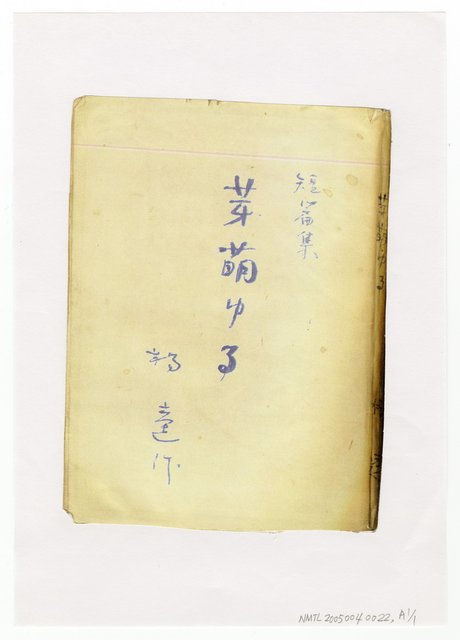 短篇集
芽萌ゆる
楊逵作
芽萌ゆる
NMTL20050040022, A1/1